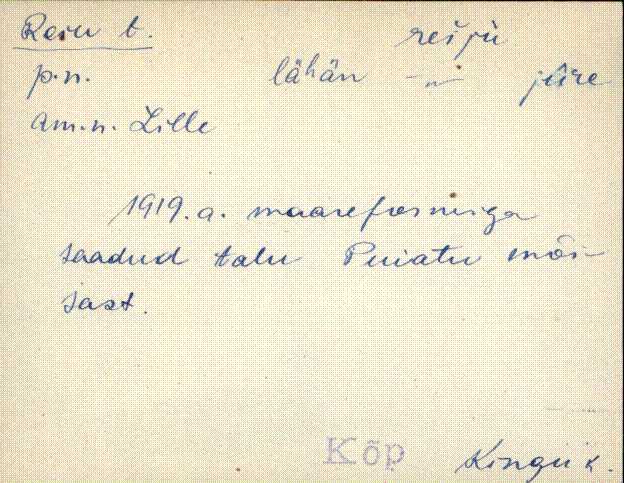 Reiu t. reiju
p.n. lähän -„- jüre
am.n. Lille
1919.a. maareformiga
saadud talu Puiatu mõi-
sast.
Kõp Kingu k.